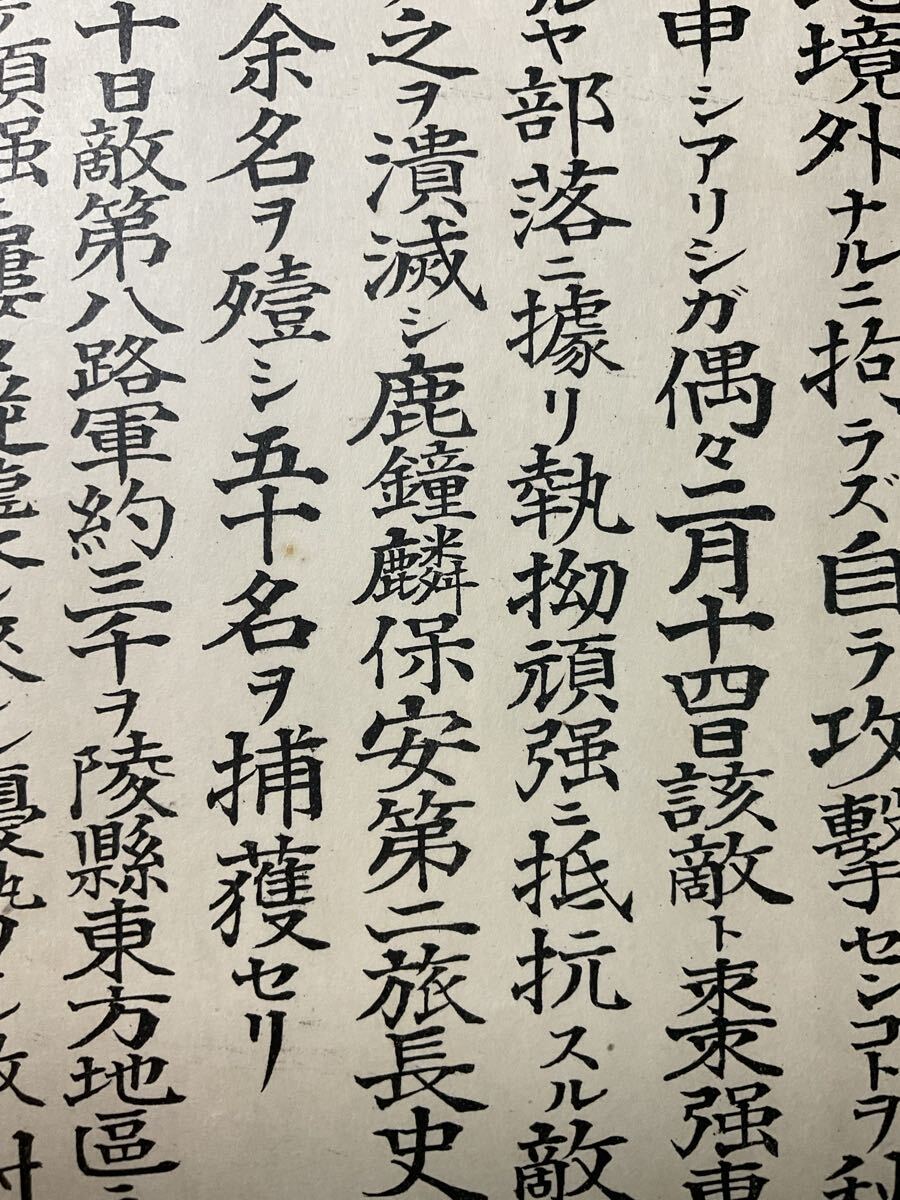 境外ナルニ拾ラズ自ラ攻擊センコトヲ
申シアリシガ偶々二月十四日該敵ト棗强東
ルヤ部落ニ據リ執拗頑强ニ抵抗スル敵
之ヲ潰滅シ鹿鐘麟保安第二旅長史
余名ヲ殪シ五十名ヲ捕獲セリ
十日敵第八路軍約三千ヲ陵縣東方地區ニ
頑强ニ